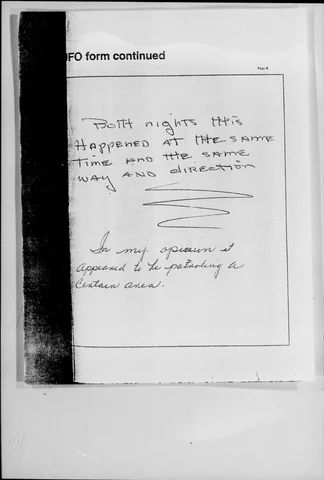 UFO form continued
Page 8
Both nights this
Happened at the same
time and the same
way and direction
In my opinion it
appeared to be patroling a
certain area.